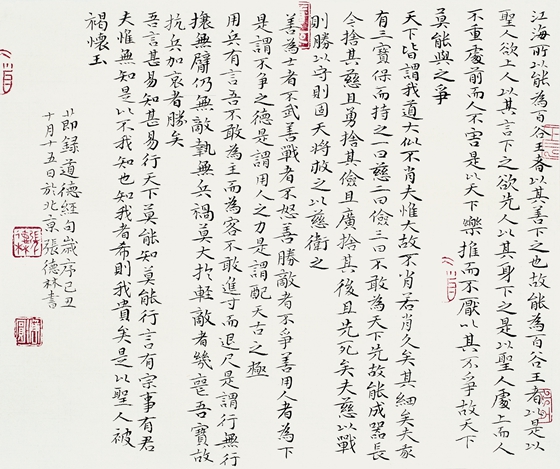 江海所以能為百谷王者以其善下之也故能為百谷王者以是以
聖人欲上人以其言下之欲先人以其身下之是以聖人處上而人
不重處前而人不害是以天下樂推而不厭以其不爭故天下
莫能與之爭
天下皆謂我道大似不肖夫惟大故不肖若肖久矣其細矣夫
有三寶保而持之一曰慈二曰儉三曰不敢為天下先故能成器長
今捨其慈且勇捨其儉且廣捨其後且先死矣夫慈以戰
則勝以守則固天將救之以慈衛之
善為士者不武善戰者不怒善勝敵者不爭善用人者為下
是謂不爭之德是謂用人之力是謂配天古之極
用兵有言吾不敢為主而為客不敢進寸而退尺是謂行無行
攘無臂仍無敵執無兵禍莫大扵輕敵者幾喪吾寶故
抗兵加哀者勝矣
吾言甚易知甚易行天下莫能知莫能行言有宗事有君
夫惟無知是以不我知也知我者希則我貴矣是以聖人被
褐懷玉
節錄道德經句歲序己丑
十月十五日於北京張德林書